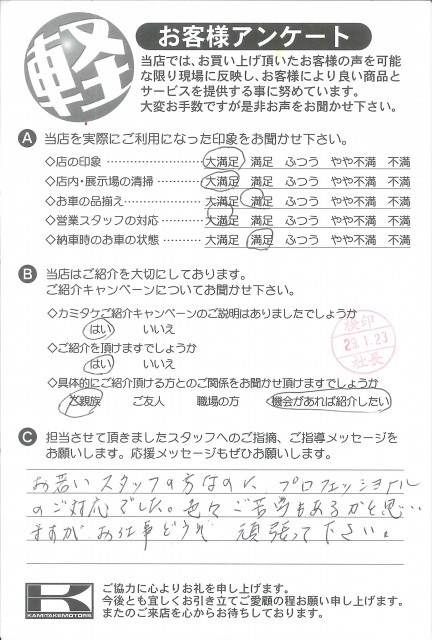 軽
お客様アンケート
当店では、お買い上げ頂いたお客様の声を可能
な限り現場に反映し、お客様により良い商品と
サービスを提供する事に努めています。
大変お手数ですが是非お声をお聞かせ下さい。
A 当店を実際にご利用になった印象をお聞かせ下さい。
◇店の印象 ………………… 大満足 満足 ふつう やや不満 不満
◇店内・展示場の清掃………… 大満足 満足 ふつう やや不満 不満
◇お車の品揃え……………… 大満足 満足 ふつう やや不満 不満
◇営業スタッフの対応………… 大満足 満足 ふつう やや不満 不満
◇納車時のお車の状態………… 大満足 満足 ふつう やや不満 不満
B 当店はご紹介を大切にしております。
ご紹介キャンペーンについてお聞かせ下さい。
◇カミタケご紹介キャンペーンのご説明はありましたでしょうか
はい いいえ
◇ご紹介を頂けますでしょうか
はい いいえ
◇具体的にご紹介頂ける方とのご関係をお聞かせ頂けますでしょうか
ご親族 ご友人 職場の方 機会があれば紹介したい
検印
29.1.23
社長
C 担当させて頂きましたスタッフへのご指摘、ご指導メッセージを
お願いします。応援メッセージもぜひお願いします。
お若いスタッフの方なのに、プロフェッショナル
のご対応でした。色々ご苦労もあるかと思い
ますがお仕事どうぞ 頑張って下さい。
K
KAMITAKEMOTORS
ご協力に心よりお礼を申し上げます。
今後とも宜しくお引き立てご愛顧の程お願い申し上げます。
またのご来店を心からお待ちしております。